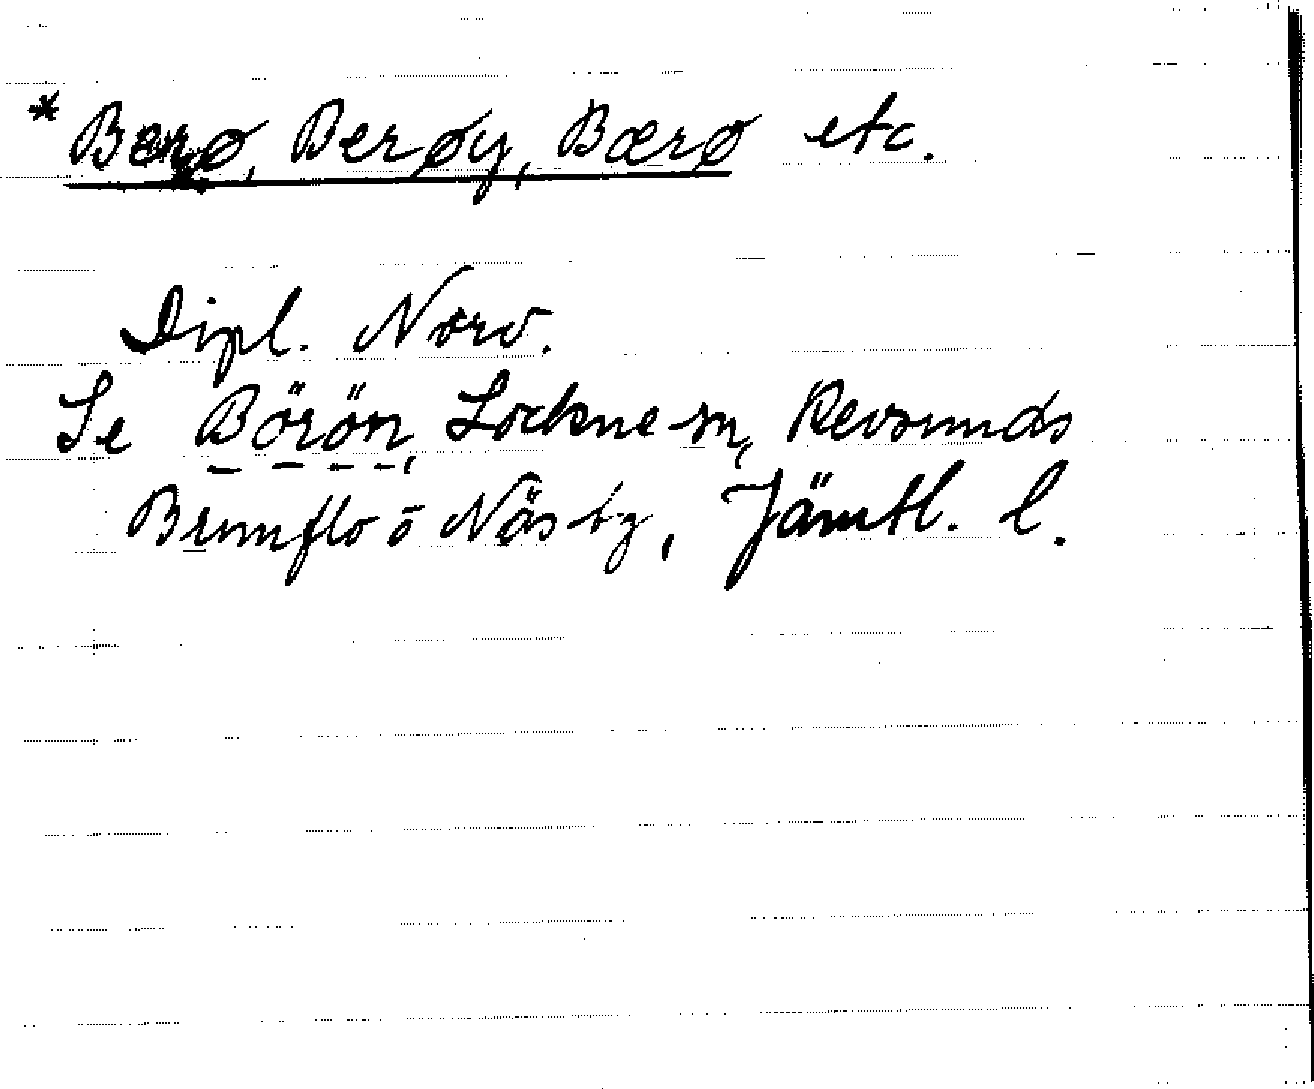 * Berø, Berøy, Bærø etc.
Dipl. Norv.
Se Börön, Lockne sn, Revsunds
Brunflo o Näs tg, Jämtl. l.